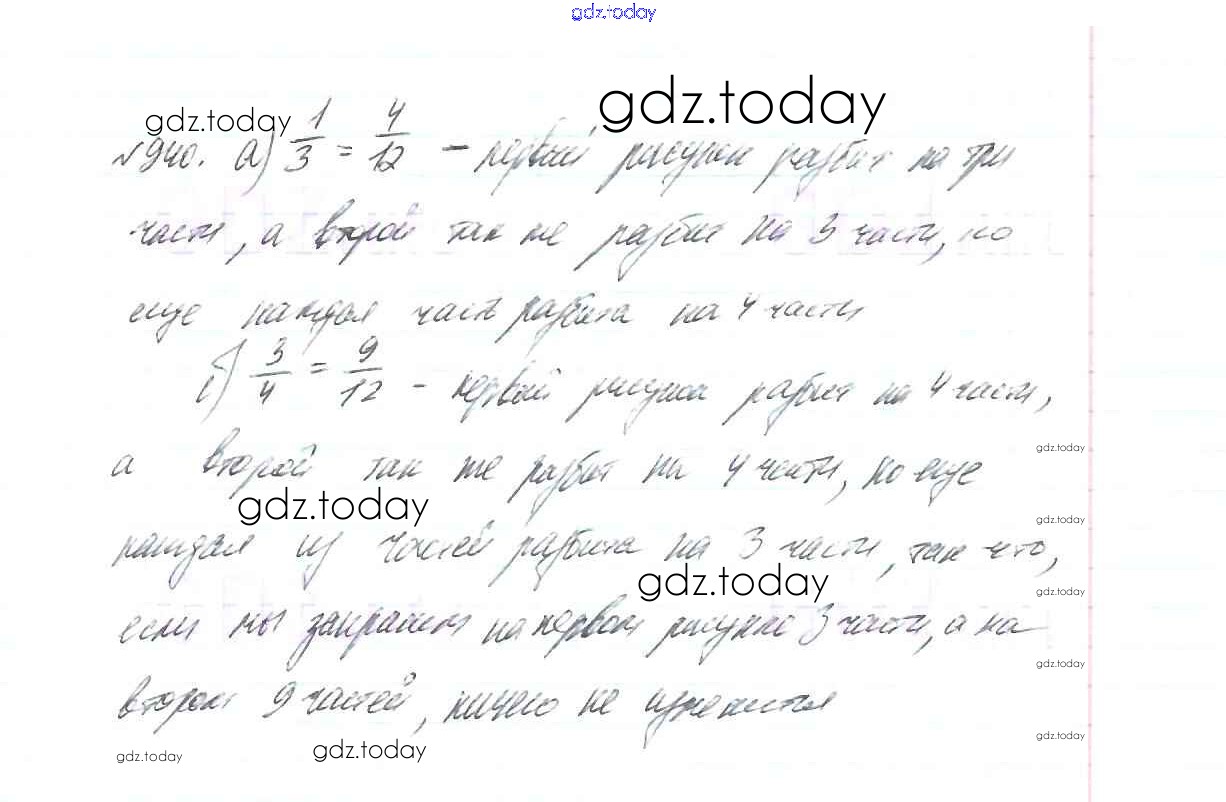 gdz.today
gdz.today
gdz.today
№940. а) 1/3 = 4/12 - первый рисунок разбит на три
части, а второй так же разбит на 3 части, но
еще каждая часть разбита на 4 части
б) 3/4 = 9/12 - первый рисунок разбит на 4 части,
gdz.today
а второй так же разбит на 4 части, но еще
gdz.today
gdz.today
каждая из частей разбита на 3 части, так что,
gdz.today
gdz.today
если мы закрасим на первом рисунке 3 части, а на
gdz.today
второй 9 частей, ничего не изменится
gdz.today
gdz.today
gdz.today